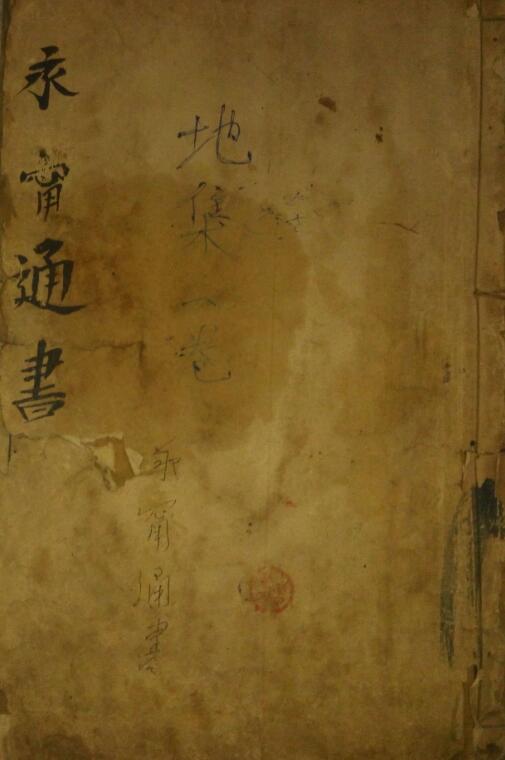 地集一卷
永甯通書
永甯通書